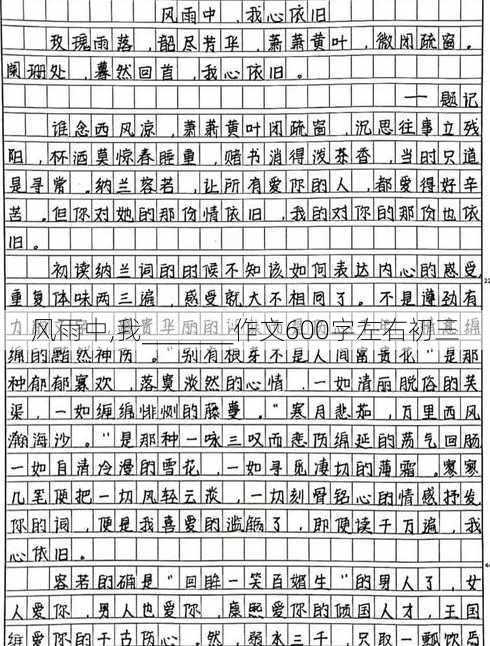 风雨中，我心依旧
玫瑰雨落，韶尽芳华，萧萧黄叶，微闭疏窗。
阑珊处，蓦然回首，我心依旧。
——题记
谁念西风凉，萧萧黄叶闭疏窗，沉思往事立残
阳，杯酒莫惊春睡重，赌书消得泼茶香，当时只道
是寻常。纳兰容若，让所有爱你的人，都爱得好辛
苦。但你对她的那份情依旧，我的对你的那份也依
旧。
初读纳兰词的时候不知该如何表达内心的感受，
重复体味两三遍，感受就大不相同了。不是薄劲有
风雨中,我________作文600字左右初三
绵的黯然神伤。"别有根芽不是人间富贵花"是那
种郁郁寡欢，落寞淡然的心情，一如清丽脱俗的芙
渠，一如缠绵悱恻的藤蔓。"寒月悲笳，万里西风
瀚海沙。"是那种一咏三叹而悲伤绵延的荡气回肠
一如自清冷漫的雪花，一如寻觅凄切的薄霜。寥寥
几笔便把一切风轻云淡，一切刻骨铭心的情感抒发
你的词，便是我喜爱的滥觞了，即使读千万遍，我
心依旧。
容若的确是"回眸一笑百媚生"的男人了，女
人爱你，男人也爱你，康熙爱你的倾国人才，王国
维爱你的千古伤心。然，弱水三千，只取一瓢饮焉